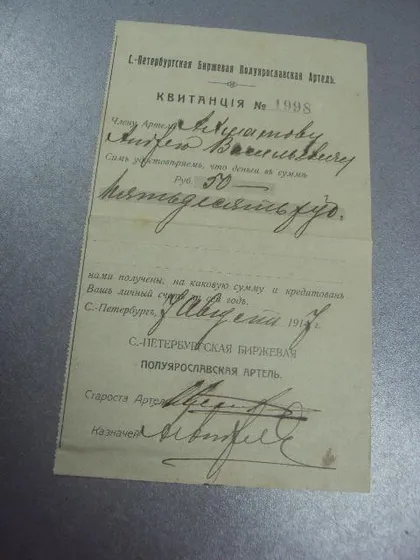 С.-Петербургская Биржевая Полуярославская Артель.
КВИТАНЦІЯ № 1998
Члену Артели
Андрею Васильевичу
Симъ удостовѣряемъ, что деньги въ суммѣ
Руб. 50 —
Пятьдесять руб.
нами получены, на каковую сумму и кредитованъ
Вашъ личный счетъ
годъ.
С.-Петербургъ, 7 Августа 1917 г.
С.-ПЕТЕРБУРГСКАЯ БИРЖЕВАЯ
ПОЛУЯРОСЛАВСКАЯ АРТЕЛЬ.
Староста Артели
Казначей